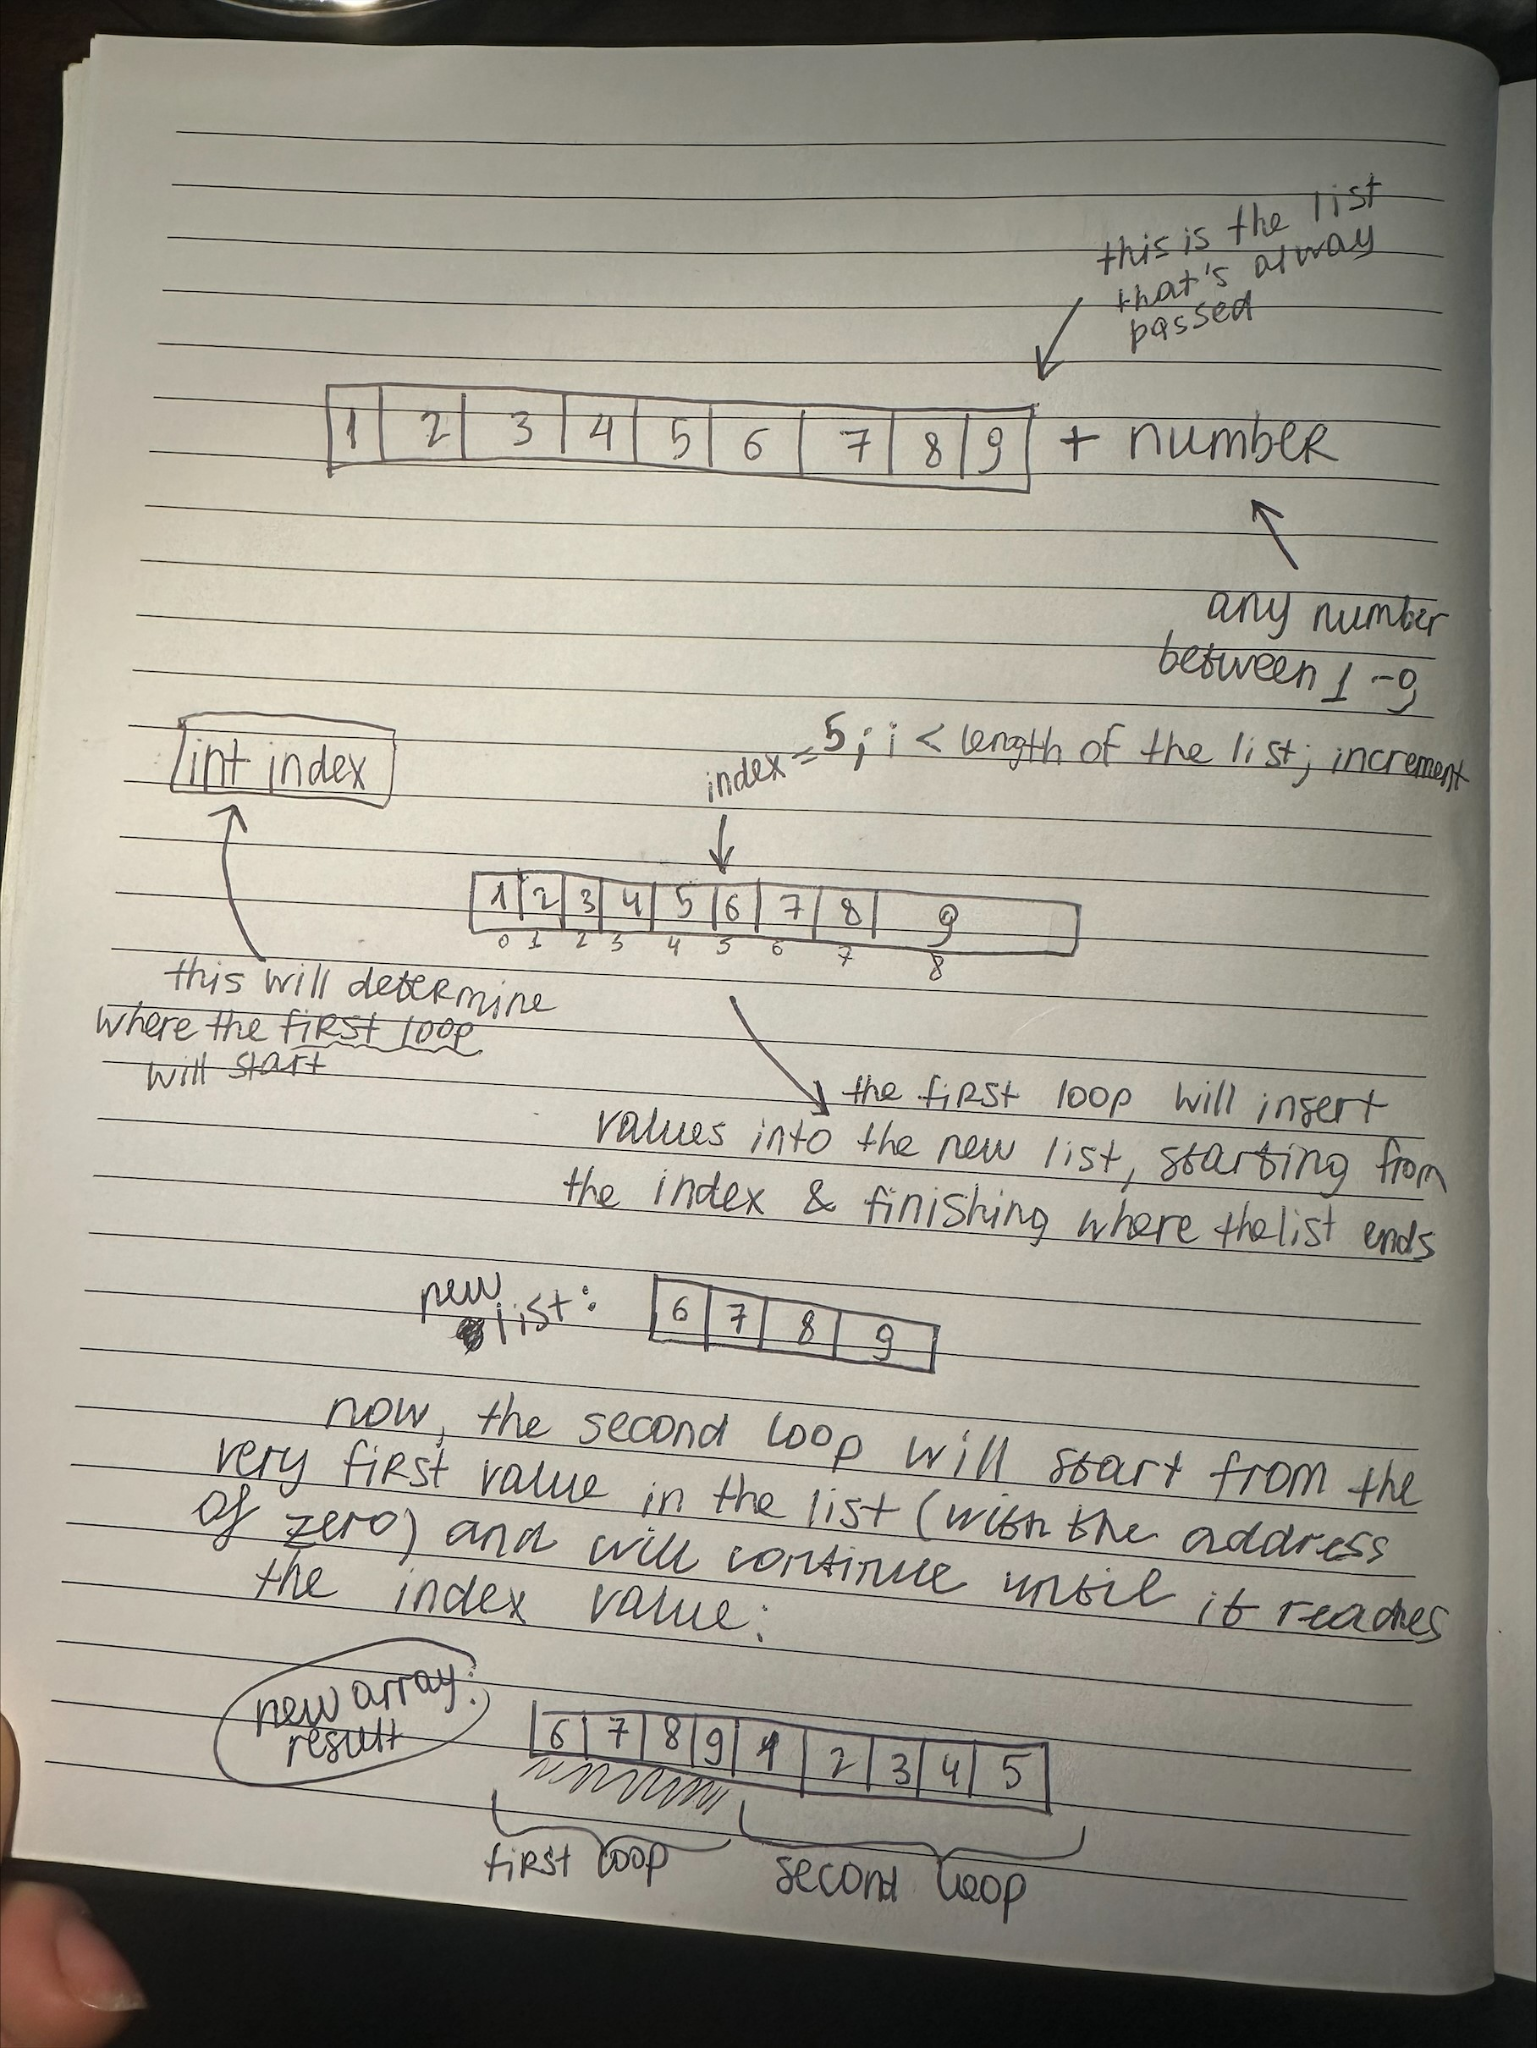 this is the list
that's alway
passed
1 2 3 4 5 6 7 8 9 + number
any number
between 1-9
int index
index = 5; i < length of the list; increment
1 2 3 4 5 6 7 8 9
0 1 2 3 4 5 6 7 8
this will determine
where the first loop
will start
the first loop will insert
values into the new list, starting from
the index & finishing where the list ends
new
list:
6 7 8 9
now, the second loop will start from the
very first value in the list (with the address
of zero) and will continue until it reaches
the index value:
new array:
result
6 7 8 9 1 2 3 4 5
first loop
second loop